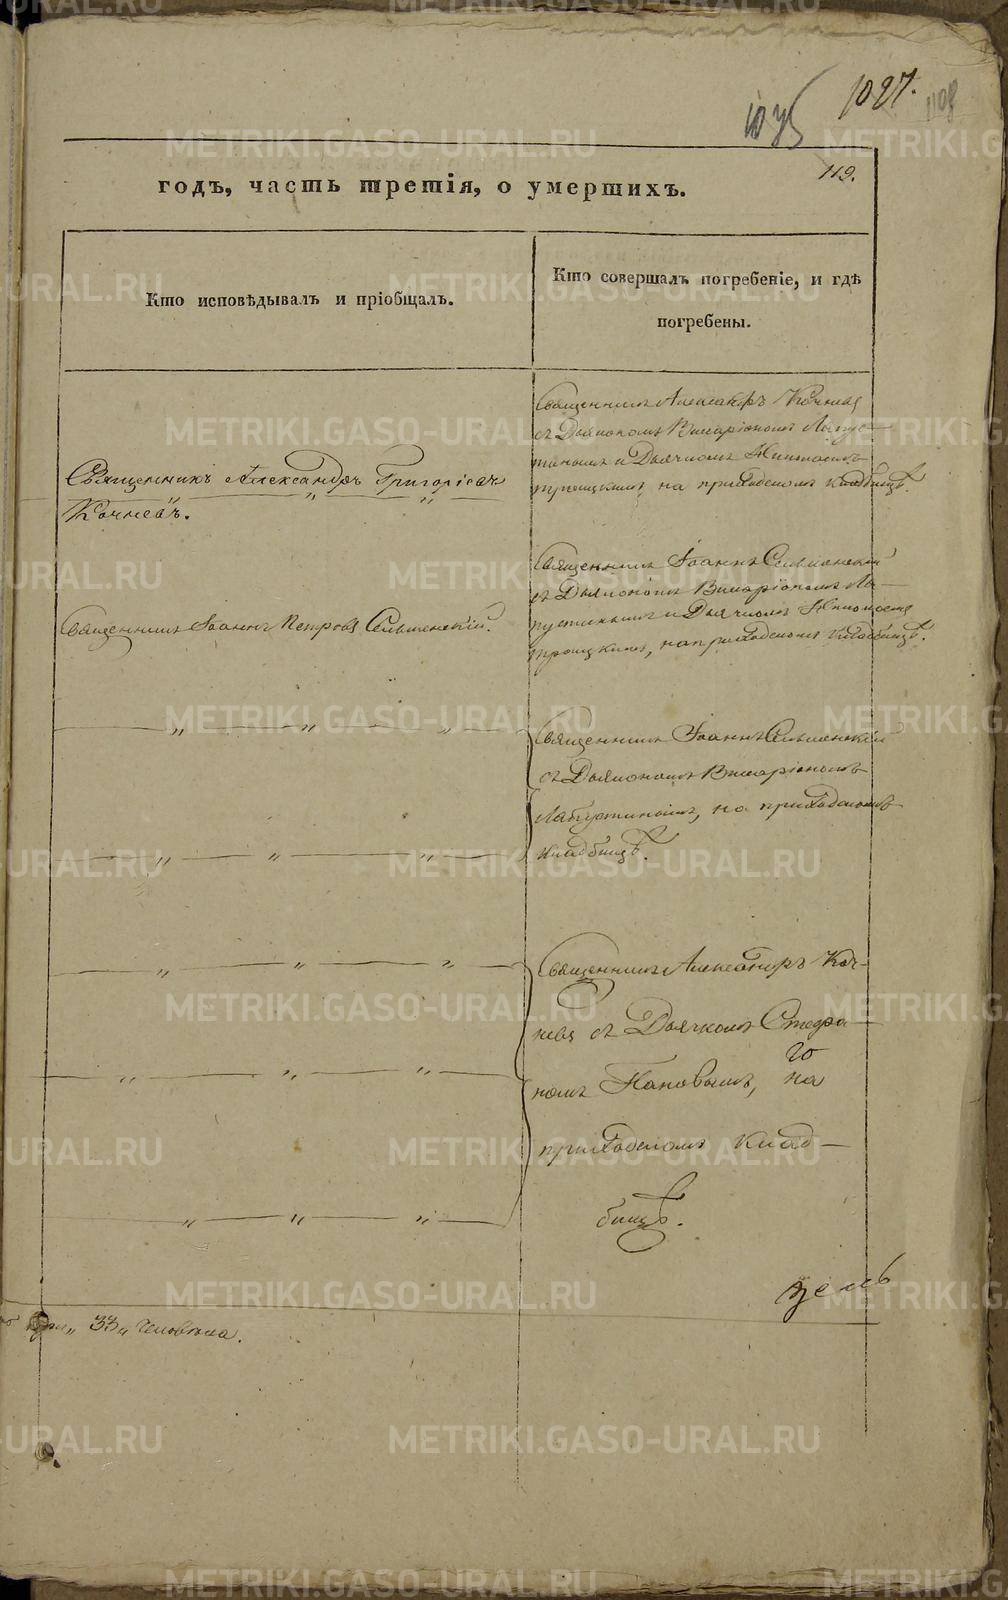 1027.
1035
1108
119.
годъ, часть третія, о умершихъ.
Кто исповѣдывалъ и пріобщалъ.
Кто совершалъ погребеніе, и гдѣ
погребены.
Священникъ Александръ Григоріевъ
Кочневъ.
Священникъ Александръ Кочневъ
съ Діакономъ Виссаріономъ
и Дьячкомъ
Троицкимъ, на приходскомъ кладбищѣ.
Священникъ Іоаннъ Петровъ Сельменскій.
Священникъ Іоаннъ Сельменскій
съ Діакономъ Виссаріономъ Ла-
пустинымъ и Дьячкомъ
Троицкимъ, на приходскомъ кладбищѣ.
Священникъ Іоаннъ Сельменскій
съ Діакономъ Виссаріономъ
на приходскомъ
кладбищѣ.
Священникъ Александръ Коч-
невъ съ Дьячкомъ Стефа-
номъ Поповымъ, на
приходскомъ клад-
бищѣ.
33 человѣка.
METRIKI.GASO-URAL.RU